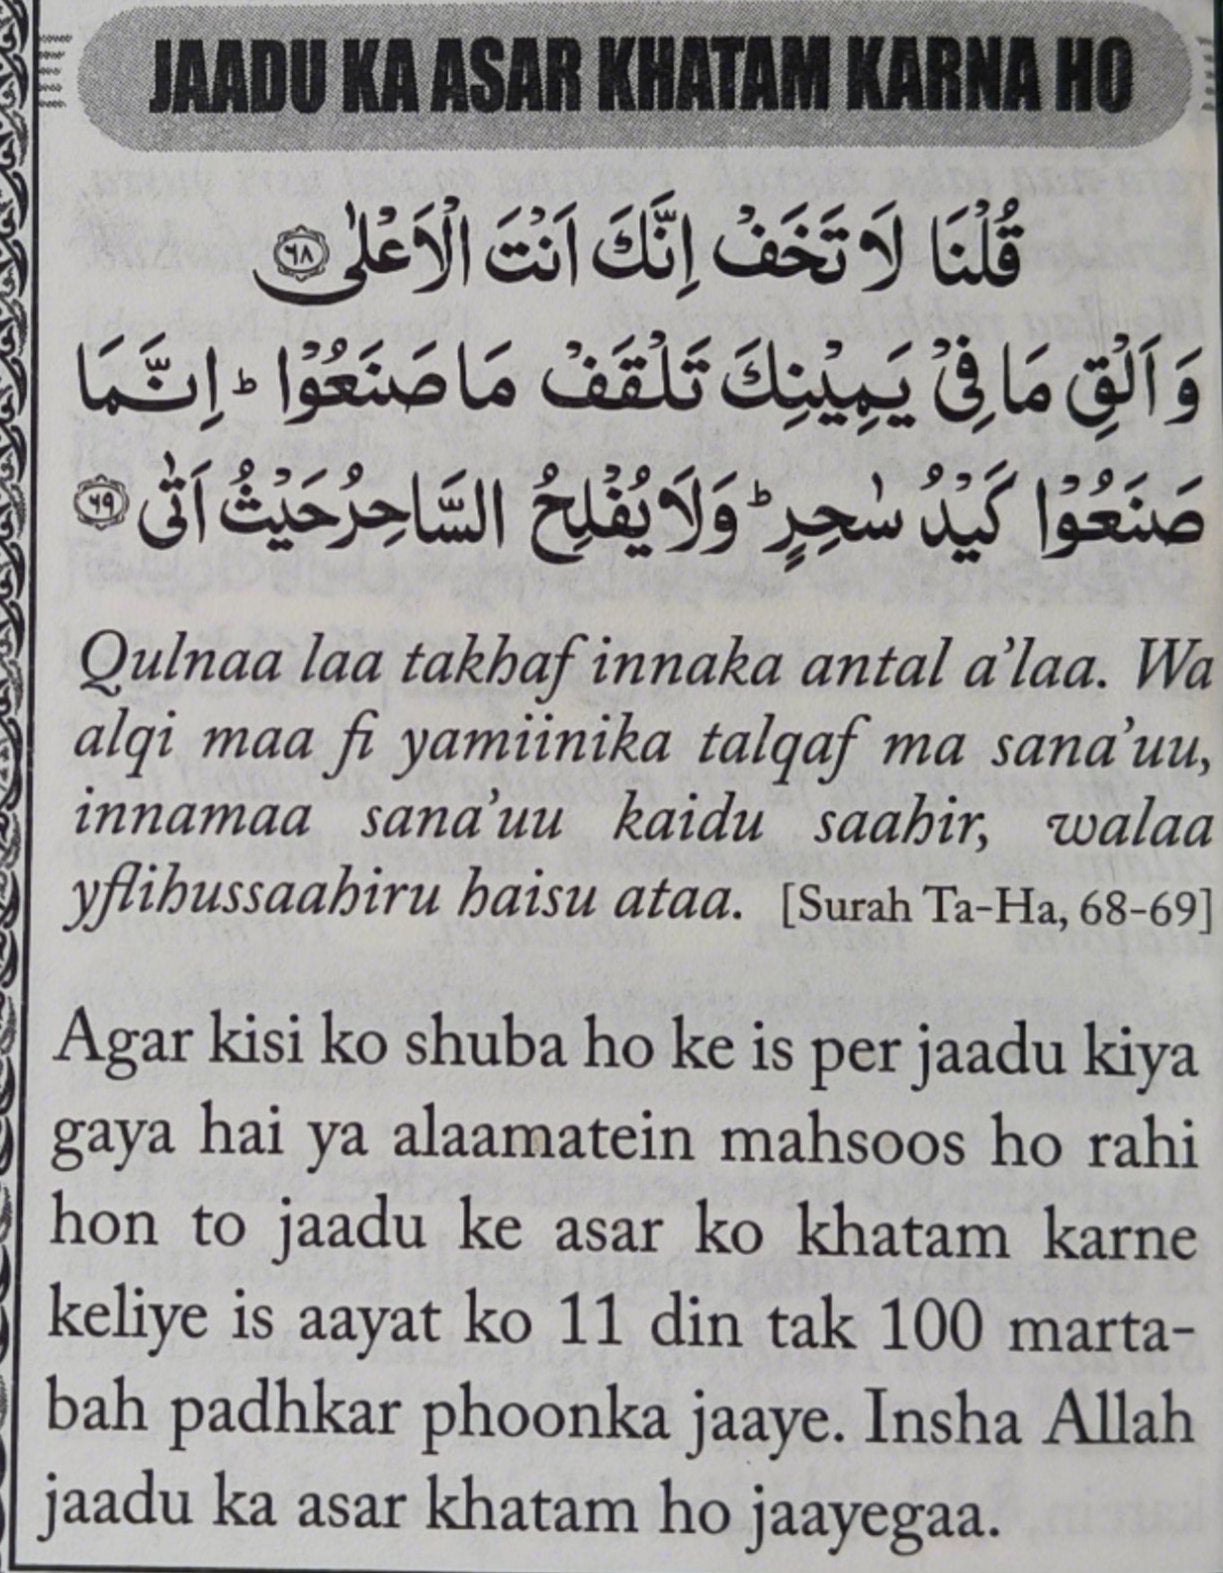 JAADU KA ASAR KHATAM KARNA HO
قُلْنَا لَا تَخَفْ اِنَّكَ اَنْتَ الْاَعْلٰى ﴿٦٨﴾
وَ اَلْقِ مَا فِيْ يَمِيْنِكَ تَلْقَفْ مَا صَنَعُوْا ؕ اِنَّمَا
صَنَعُوْا كَيْدُ سٰحِرٍ ؕ وَلَا يُفْلِحُ السَّاحِرُ حَيْثُ اَتٰى ﴿٦٩﴾
Qulnaa laa takhaf innaka antal a’laa. Wa
alqi maa fi yamiinika talqaf ma sana’uu,
innamaa sana’uu kaidu saahir, walaa
yflihussaahiru haisu ataa. [Surah Ta-Ha, 68-69]
Agar kisi ko shuba ho ke is per jaadu kiya
gaya hai ya alaamatein mahsoos ho rahi
hon to jaadu ke asar ko khatam karne
keliye is aayat ko 11 din tak 100 marta-
bah padhkar phoonka jaaye. Insha Allah
jaadu ka asar khatam ho jaayegaa.